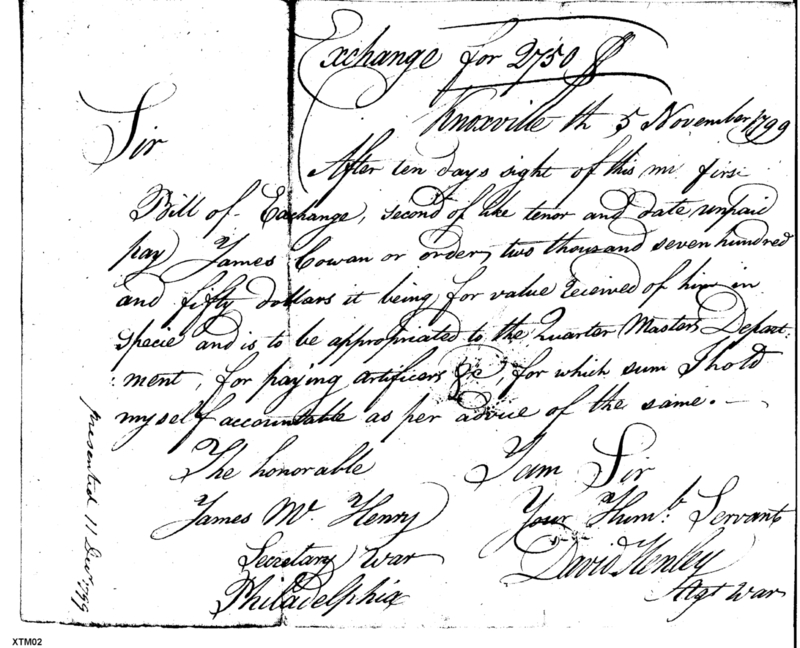 Exchange for 2750 $
Knoxville th 5 November 1799
Sir
After ten days sight of this my first
Bill of Exchange, second of like tenor and date unpaid
pay James Cowan or order, two thousand seven hundred
and fifty dollars it being for value received of him in
specie and is to be appropriated to the Quarter Masters Depart-
:ment, for paying artificers &c, for which sum I hold
myself accountable as per advice of the same. —
The honorable
James Mc. Henry
Secretary War
Philadelphia
I am Sir
Your Humb.le Servant
David Henley
Agt War
presented 11 Decr. 1799
XTM02